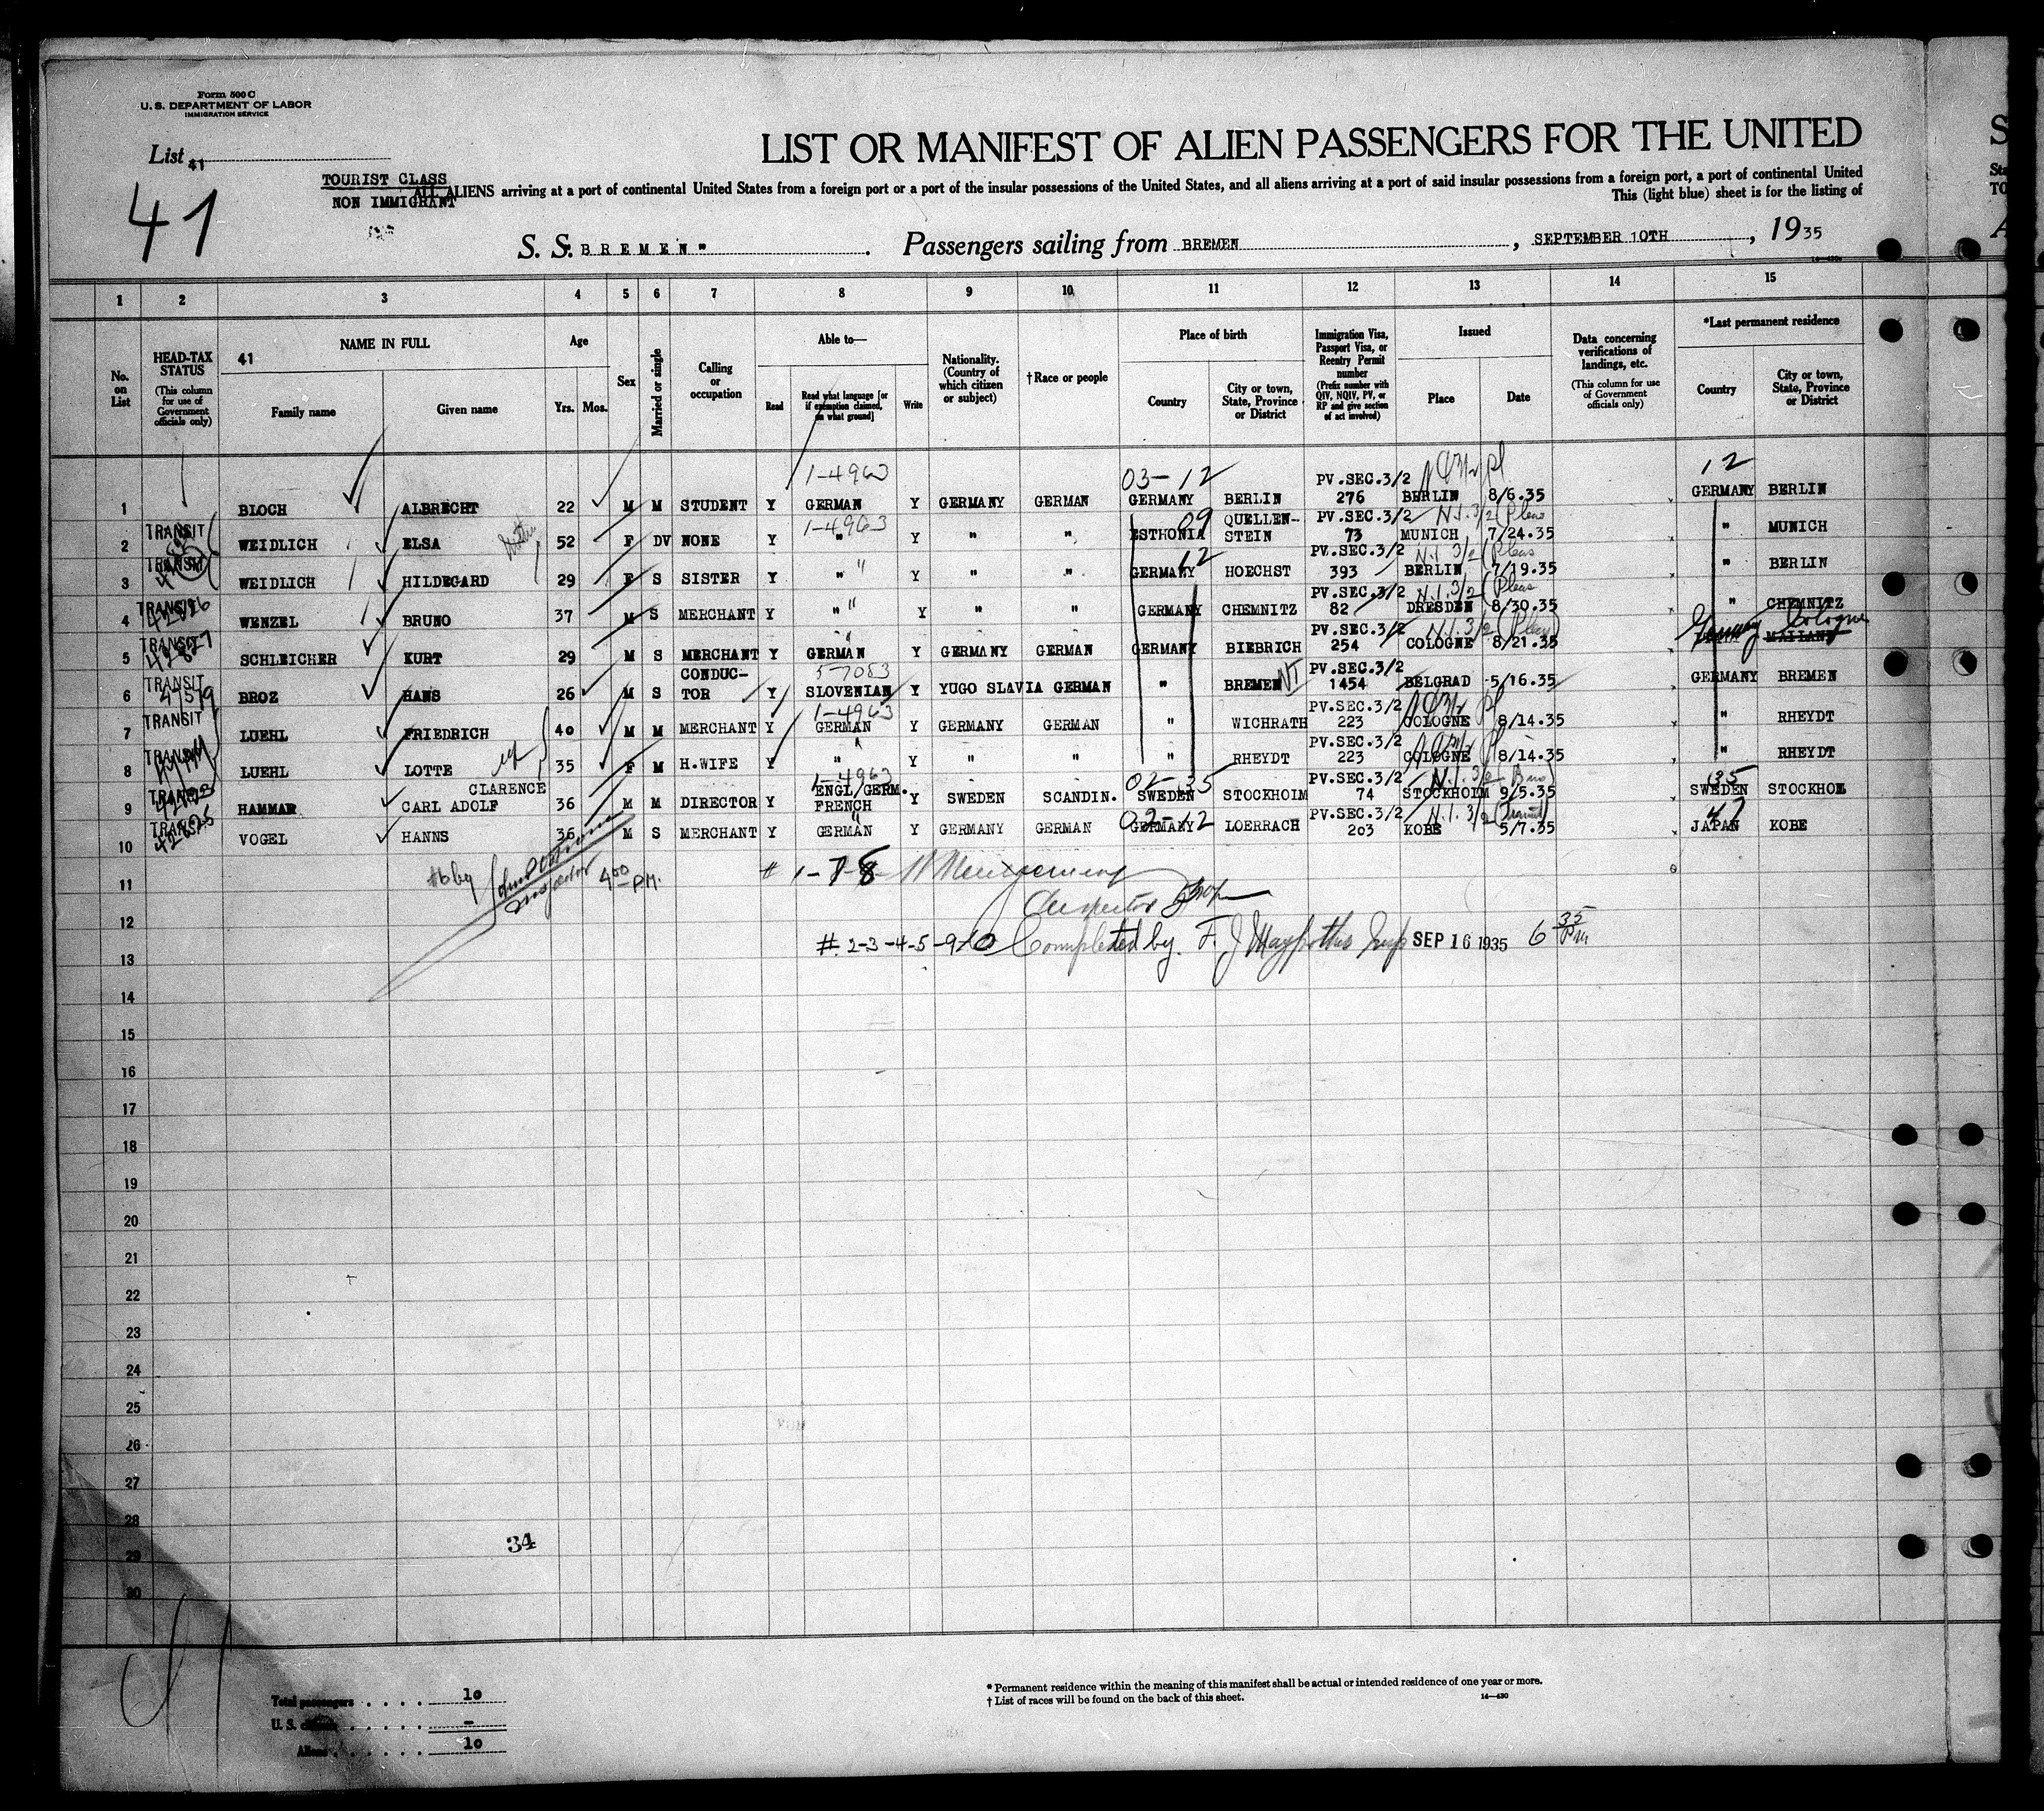 Form 500 C
U. S. DEPARTMENT OF LABOR
IMMIGRATION SERVICE
LIST OR MANIFEST OF ALIEN PASSENGERS FOR THE UNITED
S
List 41
TOURIST CLASS
NON IMMIGRANT
41
ALL ALIENS arriving at a port of continental United States from a foreign port or a port of the insular possessions of the United States, and all aliens arriving at a port of said insular possessions from a foreign port, a port of continental United
This (light blue) sheet is for the listing of
S. S. "BREMEN" . Passengers sailing from BREMEN , SEPTEMBER 10TH , 1935
1 2 3 4 5 6 7 8 9 10 11 12 13 14 15
No. on List
HEAD-TAX STATUS (This column for use of Government officials only)
41 NAME IN FULL
Family name Given name
Age
Yrs. Mos.
Sex
Married or single
Calling or occupation
Able to—
Read Read what language [or if exemption claimed, on what ground] Write
Nationality. (Country of which citizen or subject)
†Race or people
Place of birth
Country City or town, State, Province or District
Immigration Visa, Passport Visa, or Reentry Permit number (Prefix number with QIV, NQIV, PV, or RP and give section of act involved)
Issued
Place Date
Data concerning verifications of landings, etc. (This column for use of Government officials only)
*Last permanent residence
Country City or town, State, Province or District
1-4963 03-12 PV.SEC.3/2 12
1 BLOCH ALBRECHT 22 M M STUDENT Y GERMAN Y GERMANY GERMAN GERMANY BERLIN 276 BERLIN 8/6.35 GERMANY BERLIN
TRANSIT 1-4963 09 QUELLEN- PV.SEC.3/2 N.I.3/2
2 WEIDLICH ELSA 52 F DV NONE Y " Y " " ESTHONIA STEIN 73 MUNICH 7/24.35 " MUNICH
TRANSIT 12 PV.SEC.3/2 N.I.3/2
3 WEIDLICH HILDEGARD 29 F S SISTER Y " Y " " GERMANY HOECHST 393 BERLIN 7/19.35 " BERLIN
TRANSIT PV.SEC.3/2 N.I.3/2
4 WENZEL BRUNO 37 M S MERCHANT Y " Y " " GERMANY CHEMNITZ 82 DRESDEN 8/30.35 " CHEMNITZ
TRANSIT PV.SEC.3/2 N.I.3/2 Germany Cologne
5 SCHLEICHER KURT 29 M S MERCHANT Y GERMAN Y GERMANY GERMAN GERMANY BIEBRICH 254 COLOGNE 8/21.35 MAILAND
TRANSIT CONDUC- 5-7083 PV.SEC.3/2
6 BROZ HANS 26 M S TOR Y SLOVENIAN Y YUGO SLAVIA GERMAN " BREMEN 1454 BELGRAD 5/16.35 GERMANY BREMEN
TRANSIT 1-4963 PV.SEC.3/2
7 LUEHL FRIEDRICH 40 M M MERCHANT Y GERMAN Y GERMANY GERMAN " WICHRATH 223 COLOGNE 8/14.35 " RHEYDT
TRANSIT PV.SEC.3/2
8 LUEHL LOTTE 35 F M H.WIFE Y " Y " " " RHEYDT 223 COLOGNE 8/14.35 " RHEYDT
TRANSIT CLARENCE 1-4963 ENGL/GERM. 02-35 PV.SEC.3/2 N.I.3/2 35
9 HAMMAR CARL ADOLF 36 M M DIRECTOR Y FRENCH Y SWEDEN SCANDIN. SWEDEN STOCKHOLM 74 STOCKHOLM 9/5.35 SWEDEN STOCKHOLM
TRANSIT 02-12 PV.SEC.3/2 N.I.3/2 (Transit) 47
10 VOGEL HANNS 36 M S MERCHANT Y GERMAN Y GERMANY GERMAN GERMANY LOERRACH 203 KOBE 5/7.35 JAPAN KOBE
#6 by Inspector 4 00 P.M.
# 1-7-8
11
Inspector
12
# 2-3-4-5-9-10 Completed by F. J. Insp SEP 16 1935 6 35 PM
13
14
15
16
17
18
19
20
21
22
23
24
25
26
27
28
34
29
30
Total passengers . . . . 10
U. S. citizens . . . . . –
Aliens . . . . . . 10
* Permanent residence within the meaning of this manifest shall be actual or intended residence of one year or more.
† List of races will be found on the back of this sheet. 14—430